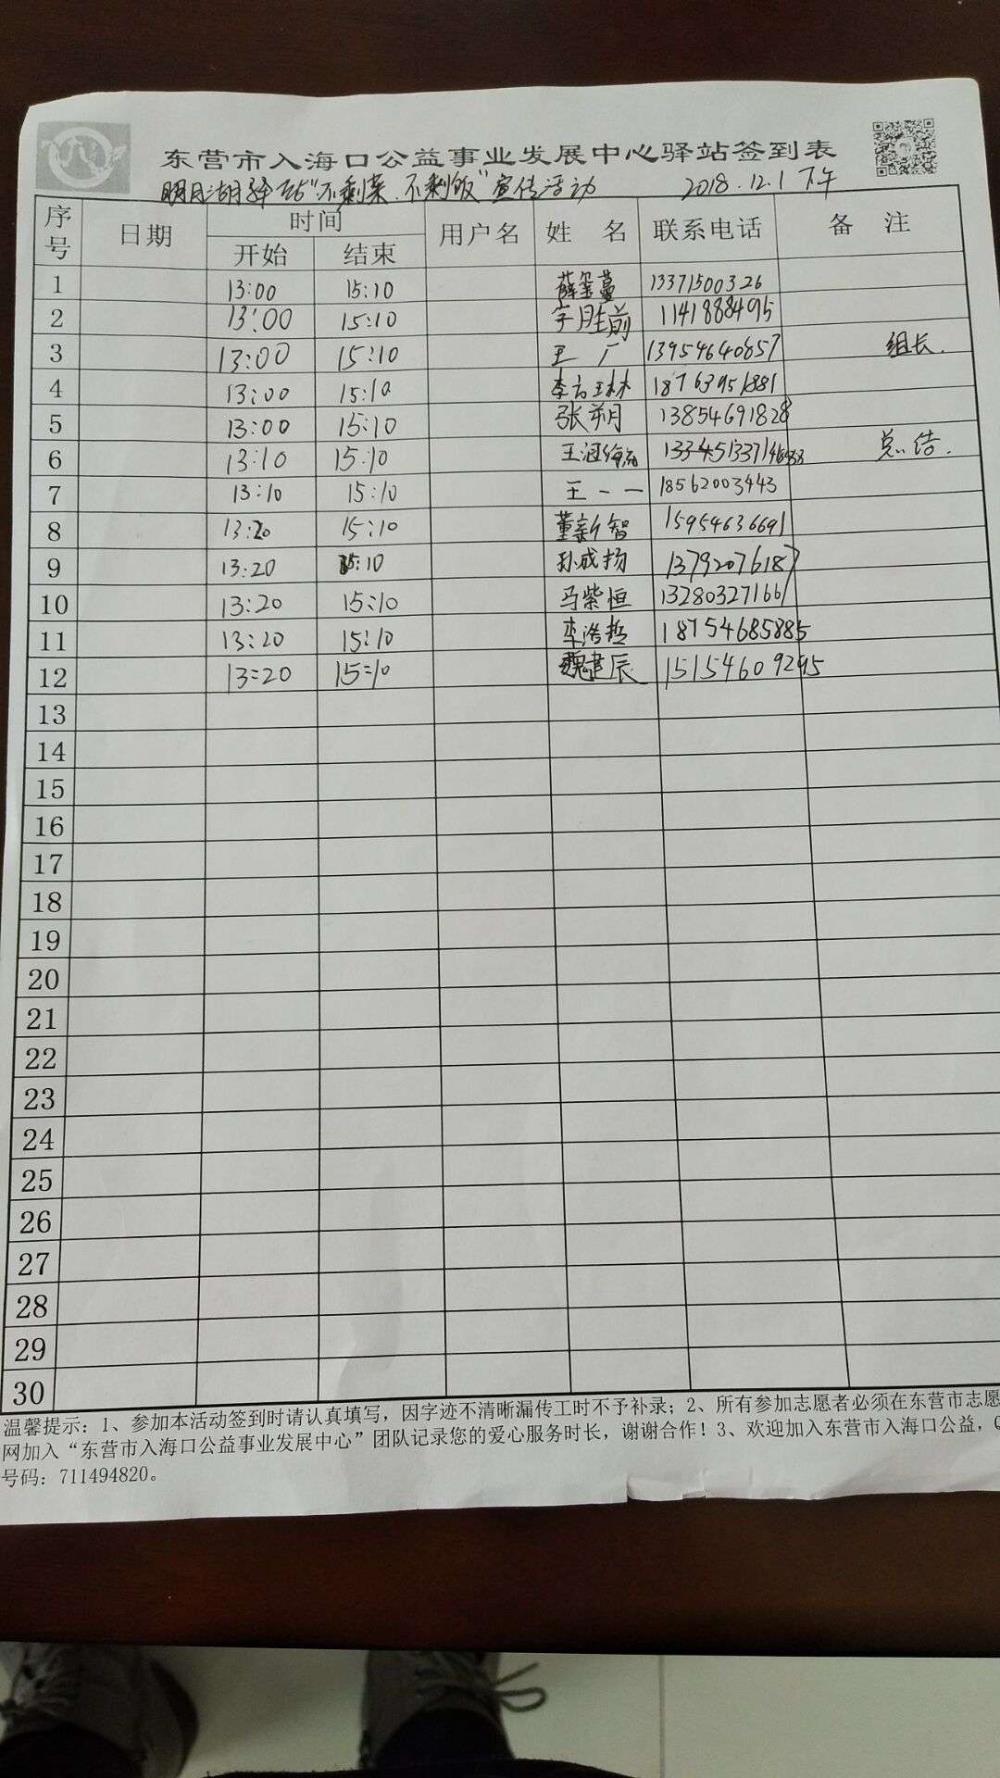 东营市入海口公益事业发展中心驿站签到表
明月湖驿站“不剩菜、不剩饭”宣传活动 2018.12.1 下午
序号 日期 时间 用户名 姓 名 联系电话 备 注
开始 结束
1 13:00 15:10 13371500326
2 13:00 15:10 1141888495
3 13:00 15:10 王广 13954640857 组长.
4 13:00 15:10 18763951881
5 13:00 15:10 张朔 13854691828
6 13:10 15:10 总结.
7 13:10 15:10 王一一 18562003443
8 13:20 15:10 董新智 15954636691
9 13:20 15:10 孙成扬 13792076187
10 13:20 15:10 马紫恒 13280327166
11 13:20 15:10 李浩哲 18754685885
12 13:20 15:10 魏建辰 15154609295
13
14
15
16
17
18
19
20
21
22
23
24
25
26
27
28
29
30
温馨提示：1、参加本活动签到时请认真填写，因字迹不清晰漏传工时不予补录；2、所有参加志愿者必须在东营市志愿
网加入“东营市入海口公益事业发展中心”团队记录您的爱心服务时长，谢谢合作！3、欢迎加入东营市入海口公益，Q
号码：711494820。